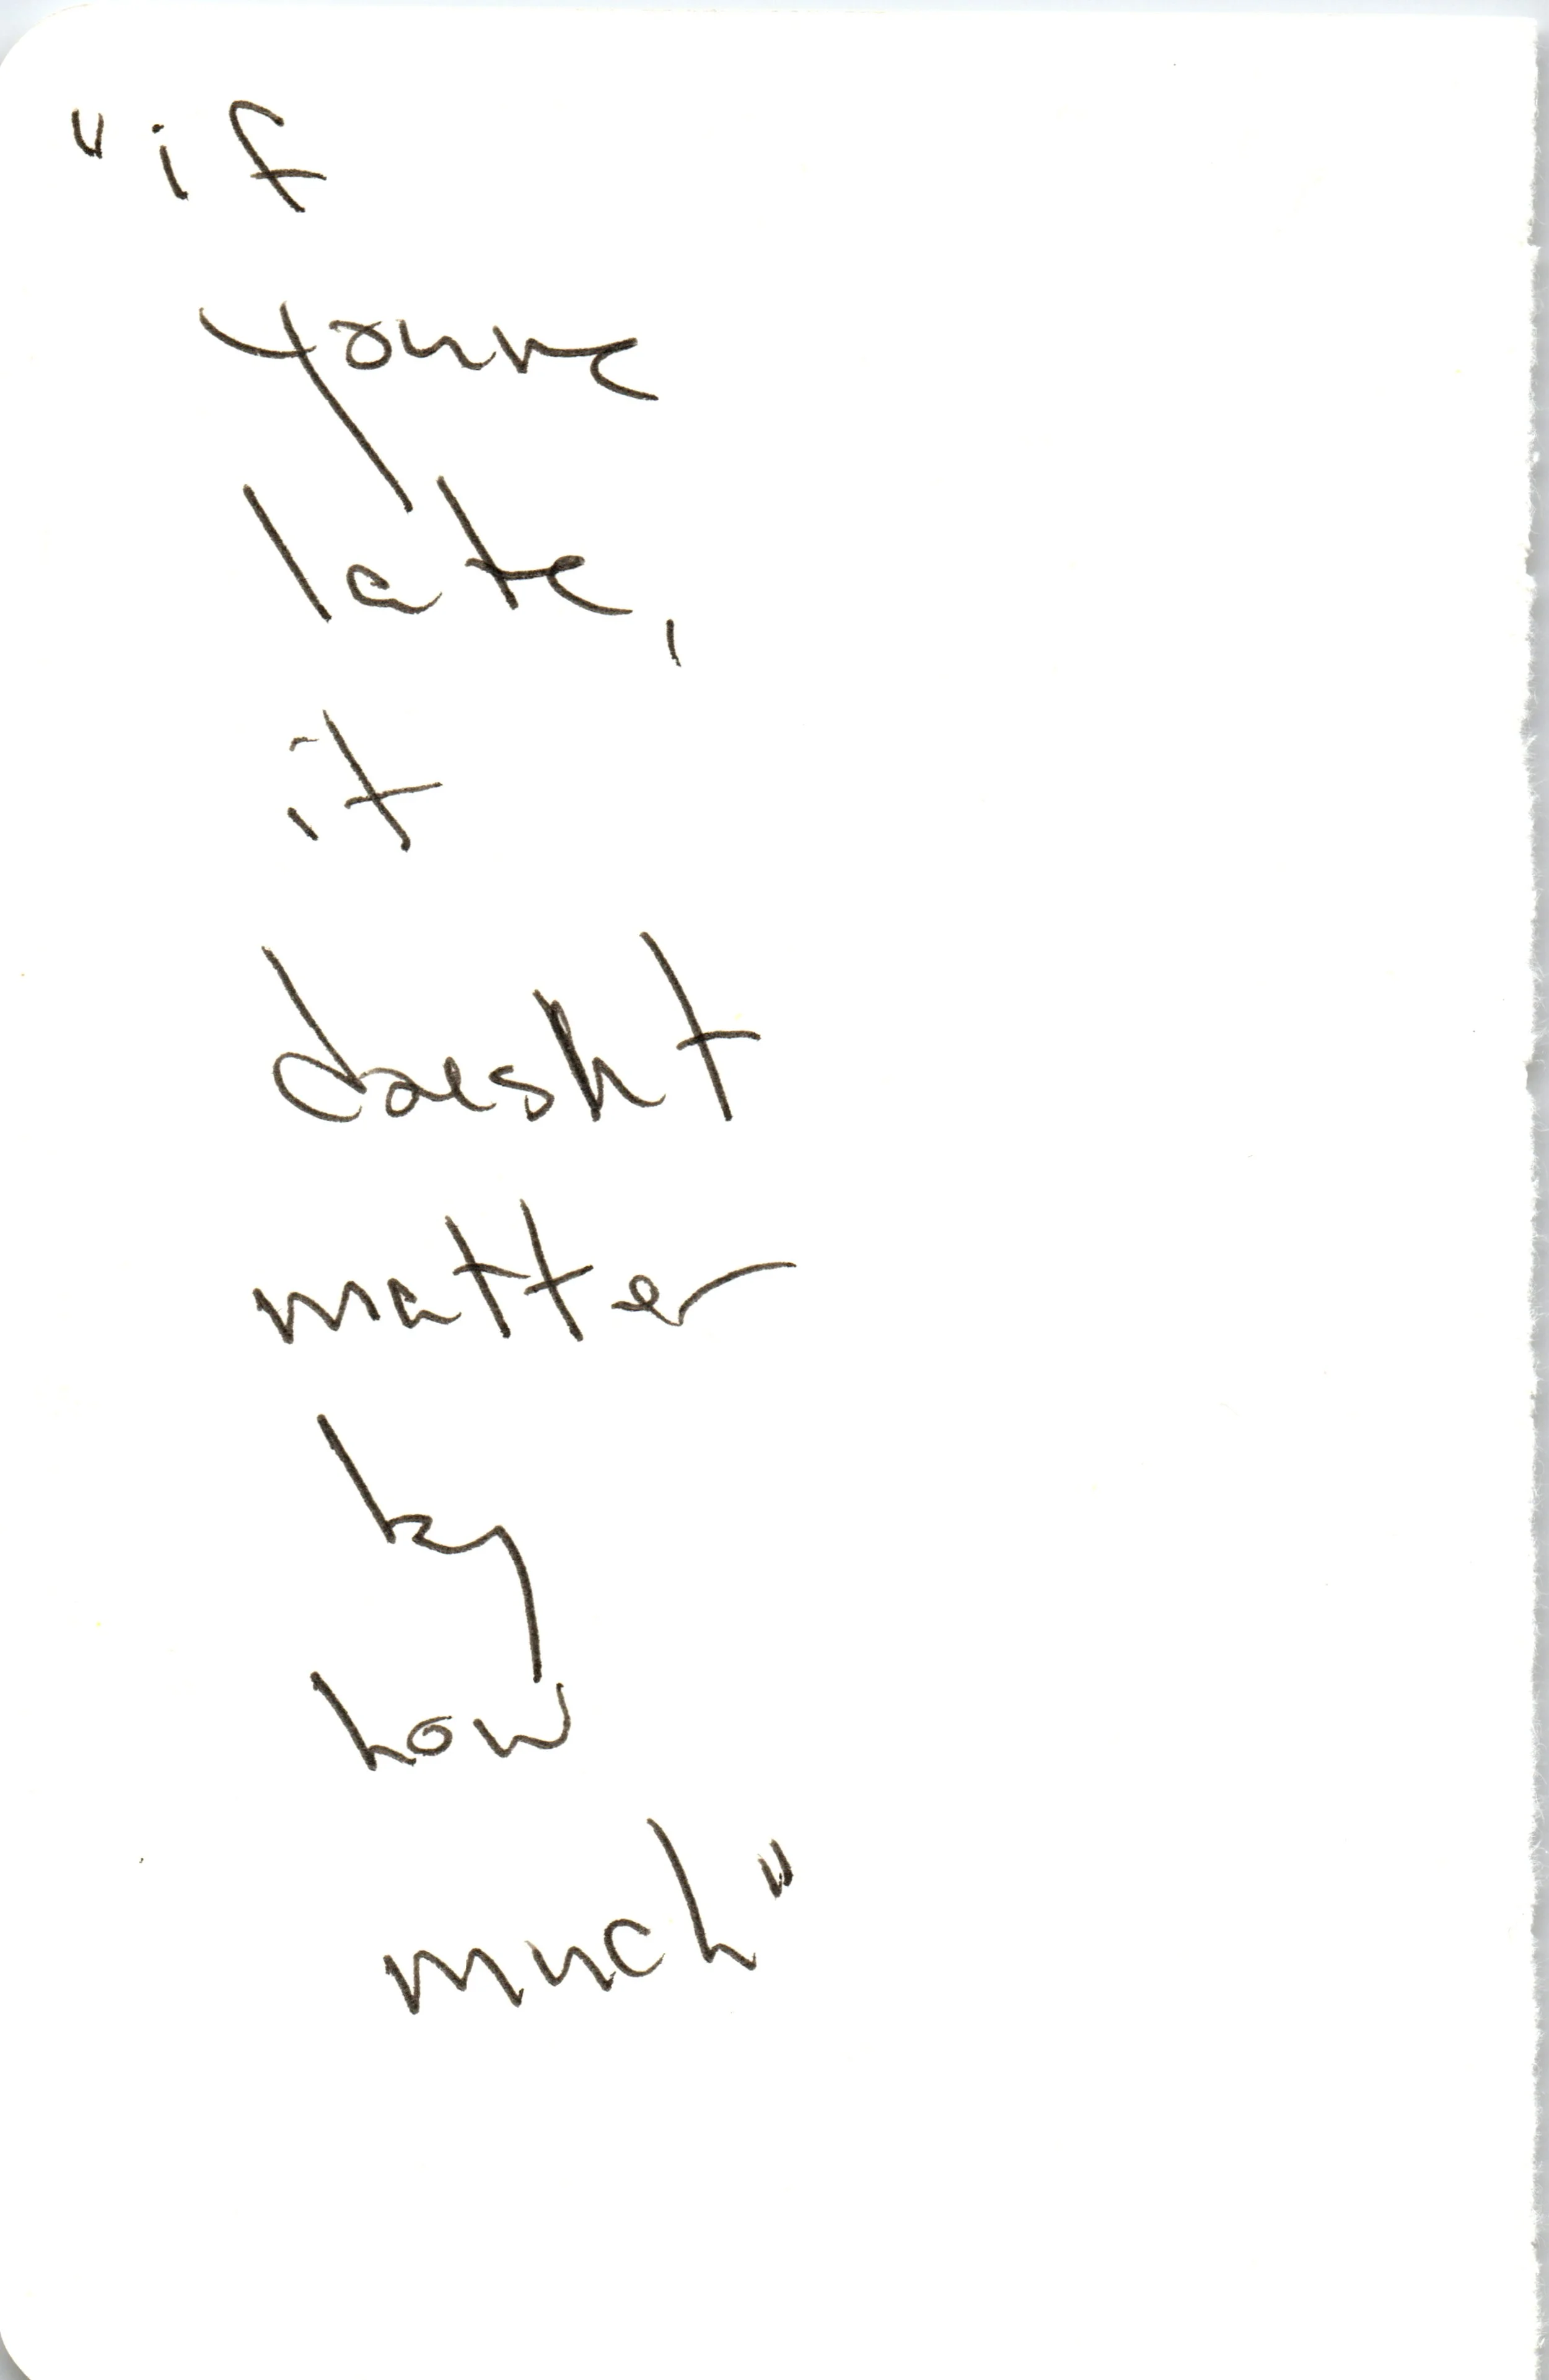 "if
youre
late,
it
doesnt
matter
by
how
much"